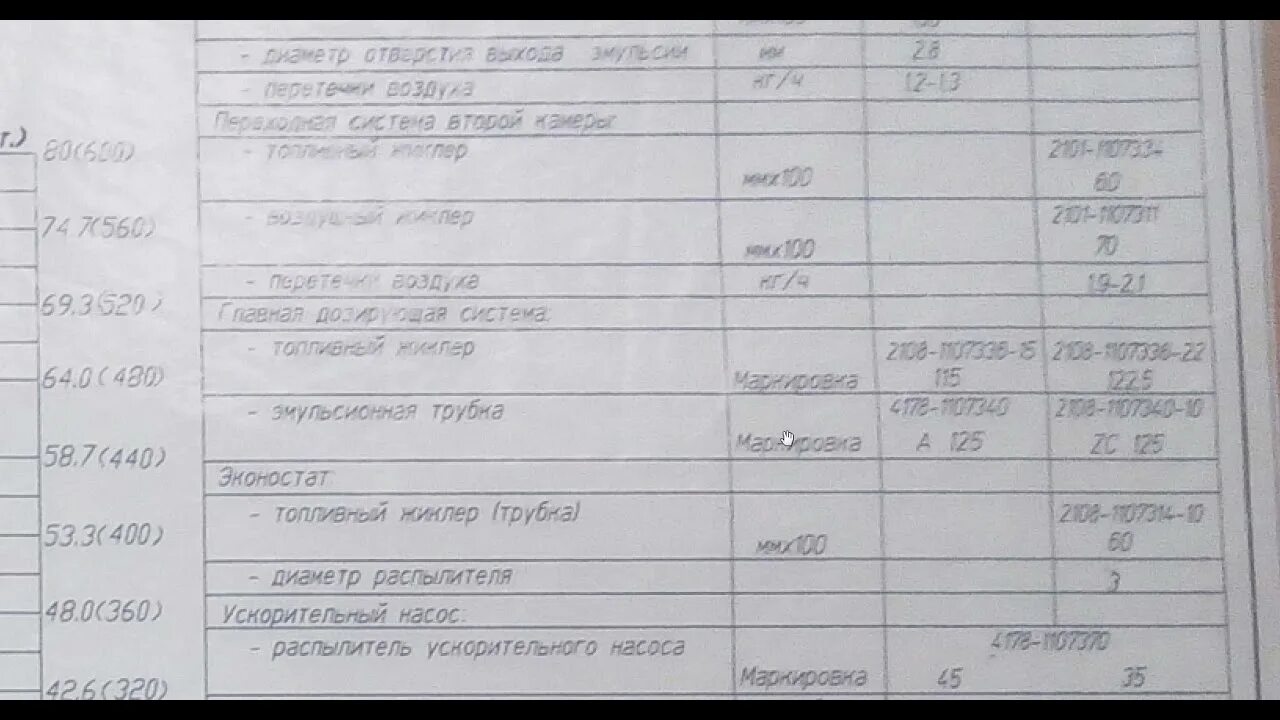 - диаметр отверстия выхода эмульсии мм 2.8
- перетечки воздуха кг/ч 1.2-1.3
Переходная система второй камеры:
80(600)
- топливный жиклер 2101-1107334
ммх100 60
74.7(560)
- воздушный жиклер 2101-1107311
ммх100 70
- перетечки воздуха кг/ч 1.9-2.1
69.3(520)
Главная дозирующая система:
- топливный жиклер 2108-1107336-15 2108-1107336-22
64.0(480) Маркировка 115 122.5
- эмульсионная трубка 4178-1107340 2108-1107340-10
Маркировка А 125 ZC 125
58.7(440)
Эконостат
- топливный жиклер (трубка) 2108-1107314-10
53.3(400) ммх100 60
- диаметр распылителя 3
48.0(360) Ускорительный насос:
- распылитель ускорительного насоса 4178-1107370
42.6(320) Маркировка 45 35